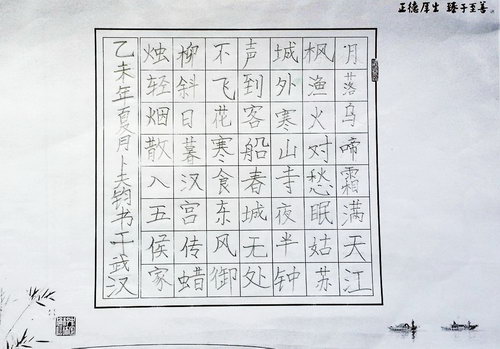 正德厚生 臻于至善
月落乌啼霜满天江
枫渔火对愁眠姑苏
城外寒山寺夜半钟
声到客船春城无处
不飞花寒食东风御
柳斜日暮汉宫传蜡
烛轻烟散入五侯家
乙未年夏月卜夫钧书于武汉